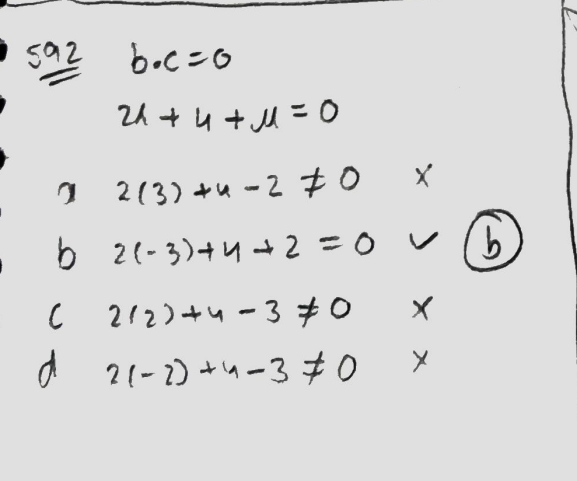 592 b.c=0
2λ + 4 + μ = 0
a 2(3)+4-2 ≠ 0 ×
b 2(-3)+4+2 = 0 ✓ b
c 2(2)+4-3 ≠ 0 ×
d 2(-2)+4-3 ≠ 0 ×